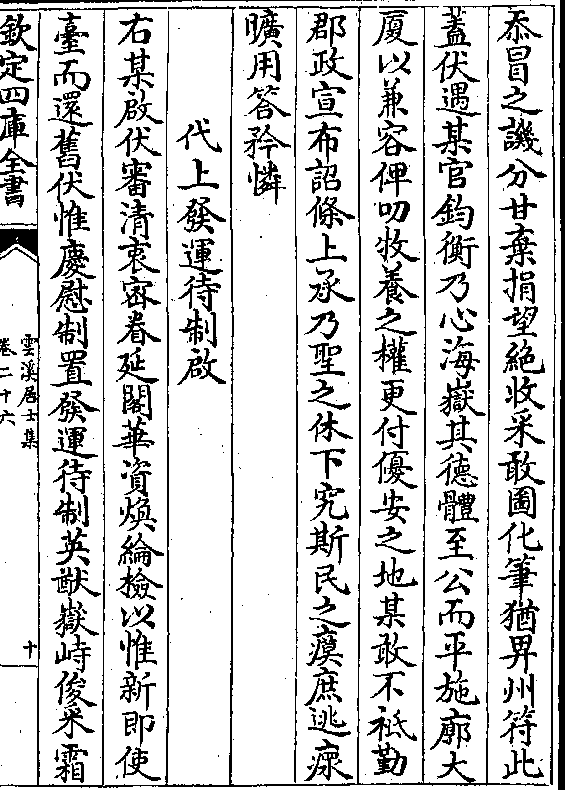 忝冒之譏分甘棄捐望絶收采敢圖化筆猶畀州符此
蓋伏遇某官鈞衡乃心海嶽其德體至公而平施廓大
厦以兼容俾叨牧養之權更付優安之地某敢不祗勤
郡政宣布詔條上承乃聖之休下究斯民之瘼庶逃瘝
曠用答矜憐
代上發運待制啟
右某啟伏審清衷密眷延閣華資煥綸檢以惟新即使
臺而還舊伏惟慶慰制置發運待制英猷嶽峙俊采霜
欽定四庫全書
雲溪居士集
卷二十六
十